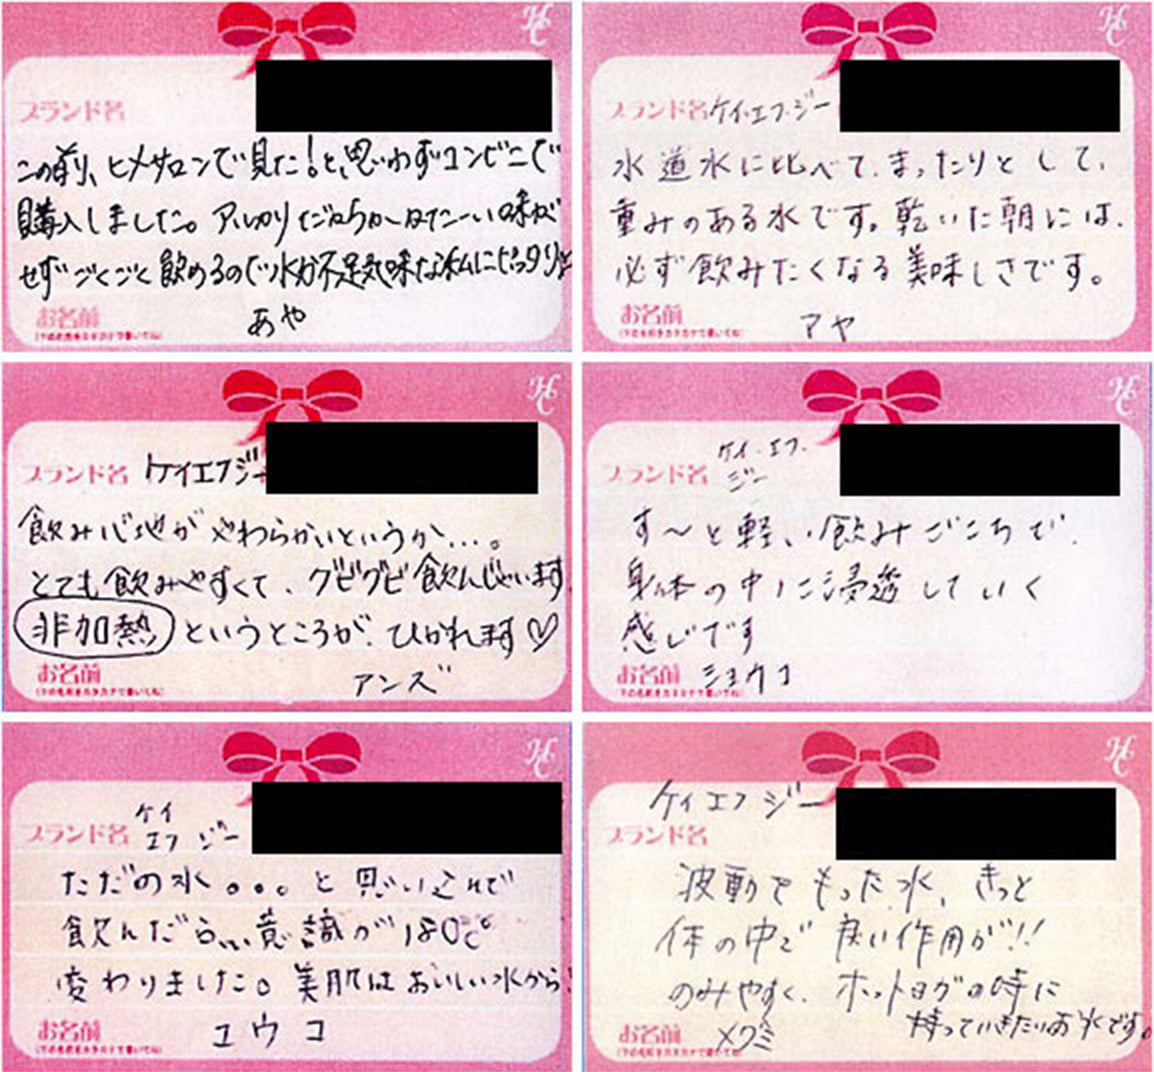 HC
ブランド名
この前、ヒメサロンで見た!と、思わずコンビニで
購入しました。アルカリだからかつめたーい味が
せずごくごく飲めるので水分不足気味な私にピッタリ
お名前
あや
HC
ブランド名 ケイ・エフ・ジー
水道水に比べて、まったりとして、
重みのある水です。乾いた朝には、
必ず飲みたくなる美味しさです。
お名前
(下の名前をカタカナで書いてね)
アヤ
HC
ブランド名 ケイエフジー
飲み心地がやわらかいというか...。
とても飲みやすくて、グビグビ飲んじゃいます
非加熱というところが、ひかれます♡
お名前
(下の名前をカタカナで書いてね)
アンズ
HC
ケイ・エフ・
ブランド名 ジー
す〜と軽い飲みごこちで、
身体の中に浸透していく
感じです
お名前 ショウコ
(下の名前をカタカナで書いてね)
HC
ケイ
ブランド名 エフ ジー
ただの水。。。と思い込んで
飲んだら、、、意識が180℃
変わりました。美肌はおいしい水から!
お名前
(下の名前をカタカナで書いてね)
ユウコ
HC
ケイエフジー
ブランド名
波動でもった水、きっと
体の中で良い作用が!!
のみやすく、ホットヨガの時に
持っていきたいお水です。
お名前 メグミ
(下の名前をカタカナで書いてね)